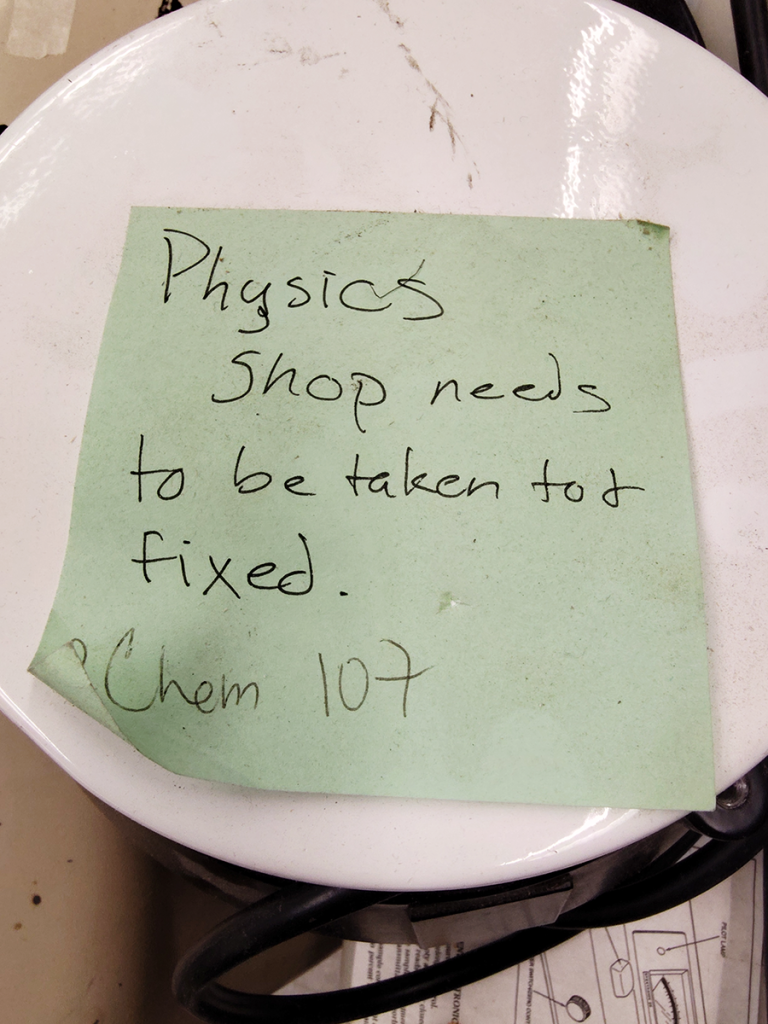 Physics
Shop needs
to be taken to &
fixed.
Chem 107
PILOT LAMP